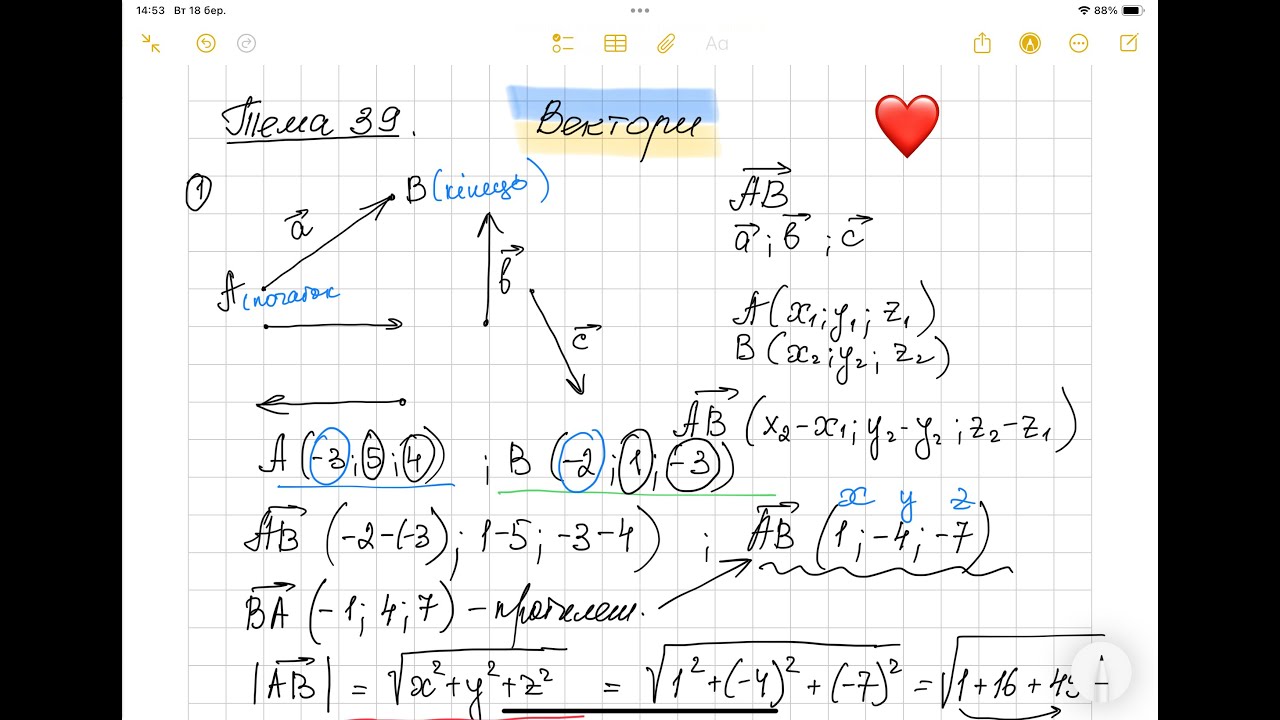 14:53 Вт 18 бер. 88%
Aa
Тема 39. Вектори
① B (кінець) AB
a a ; b ; c
A (початок b
c A(x₁; y₁; z₁)
B (x₂; y₂; z₂)
AB (x₂-x₁; y₂-y₂; z₂-z₁)
A (-3; 5; 4) ; B (-2; 1; -3)
x y z
AB (-2-(-3); 1-5; -3-4) ; AB (1; -4; -7)
BA (-1; 4; 7) - протилеж.
|AB| = √x²+y²+z² = √1²+(-4)²+(-7)² = √1+16+49